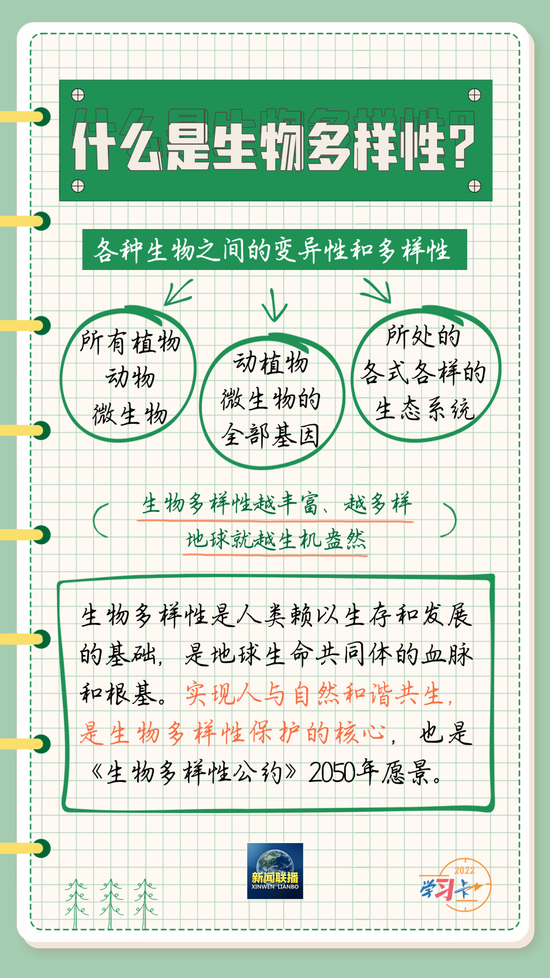 什么是生物多样性?
各种生物之间的变异性和多样性
所有植物
动物
微生物
动植物
微生物的
全部基因
所处的
各式各样的
生态系统
生物多样性越丰富、越多样
地球就越生机盎然
生物多样性是人类赖以生存和发展
的基础，是地球生命共同体的血脉
和根基。实现人与自然和谐共生，
是生物多样性保护的核心，也是
《生物多样性公约》2050年愿景。
新闻联播
XINWEN LIANBO
2022
学习卡